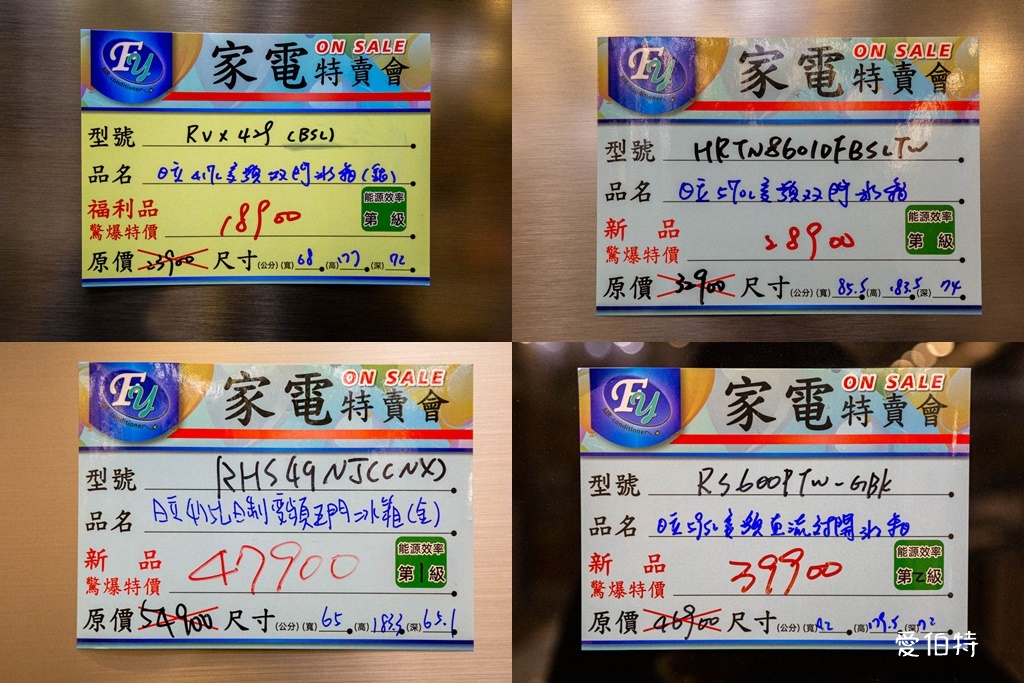 FY
Air Conditioner
家電特賣會
ON SALE
型號 RVX429 (BSL)
品名 日立417L變頻双門冰箱(銀)
福利品
驚爆特價 18900
能源效率
第 級
原價 23900 尺寸(公分)(寬)68(高)177(深)72
FY
家電特賣會
ON SALE
型號 HRTN8601DFBSLTW
品名 日立570L變頻双門冰箱
新品
驚爆特價 28900
能源效率
第 級
原價 32900 尺寸(公分)(寬)85.5(高)183.5(深)74
FY
Air Conditioner
家電特賣會
ON SALE
型號 RHS49NJ(CNX)
品名 日立475L日制變頻五門冰箱(金)
新品
驚爆特價 47900
能源效率
第1級
原價 54900 尺寸(公分)(寬)65(高)183.3(深)65.1
FY
Air Conditioner
家電特賣會
ON SALE
型號 RS600PTW-GBK
品名 日立595L變頻直流對開冰箱
新品
驚爆特價 39900
能源效率
第2級
原價 46900 尺寸(公分)(寬)92(高)179.5(深)72
愛伯特